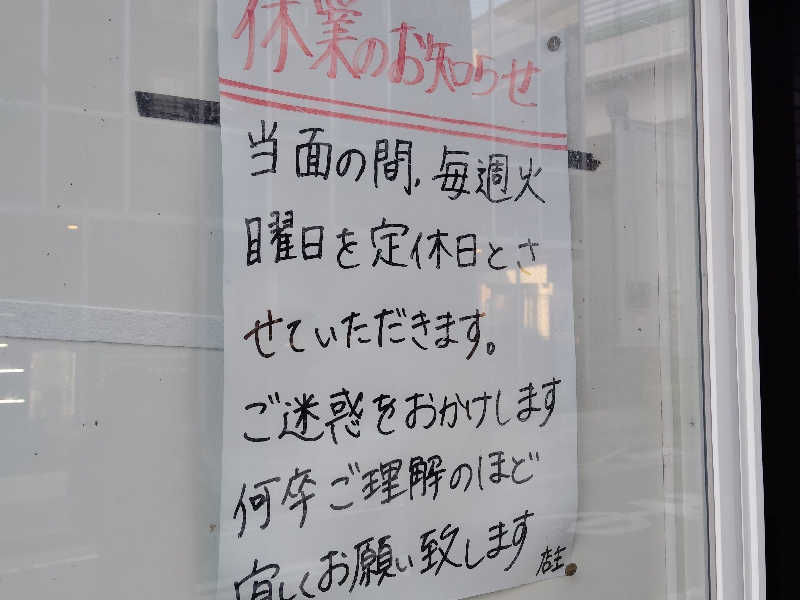 休業のお知らせ
当面の間、毎週火
曜日を定休日とさ
せていただきます。
ご迷惑をおかけします
何卒ご理解のほど
宜しくお願い致します
店主